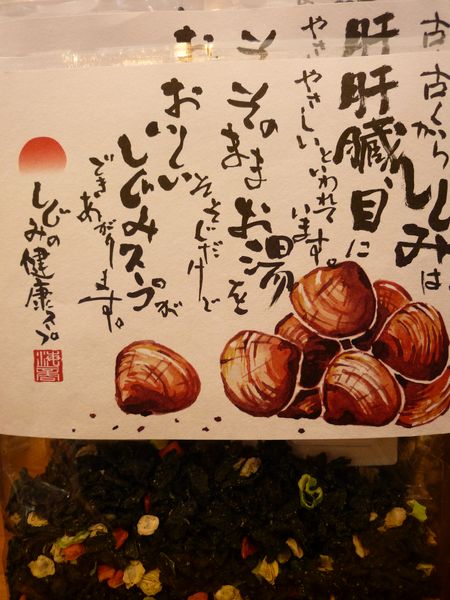 古古くからしじみは、
肝肝臓、目に
やさやさしいといわれています。
そそのままお湯を
そそぐだけで
おおいしい
しじみスープが
できあがります。
しじみの健康スープ